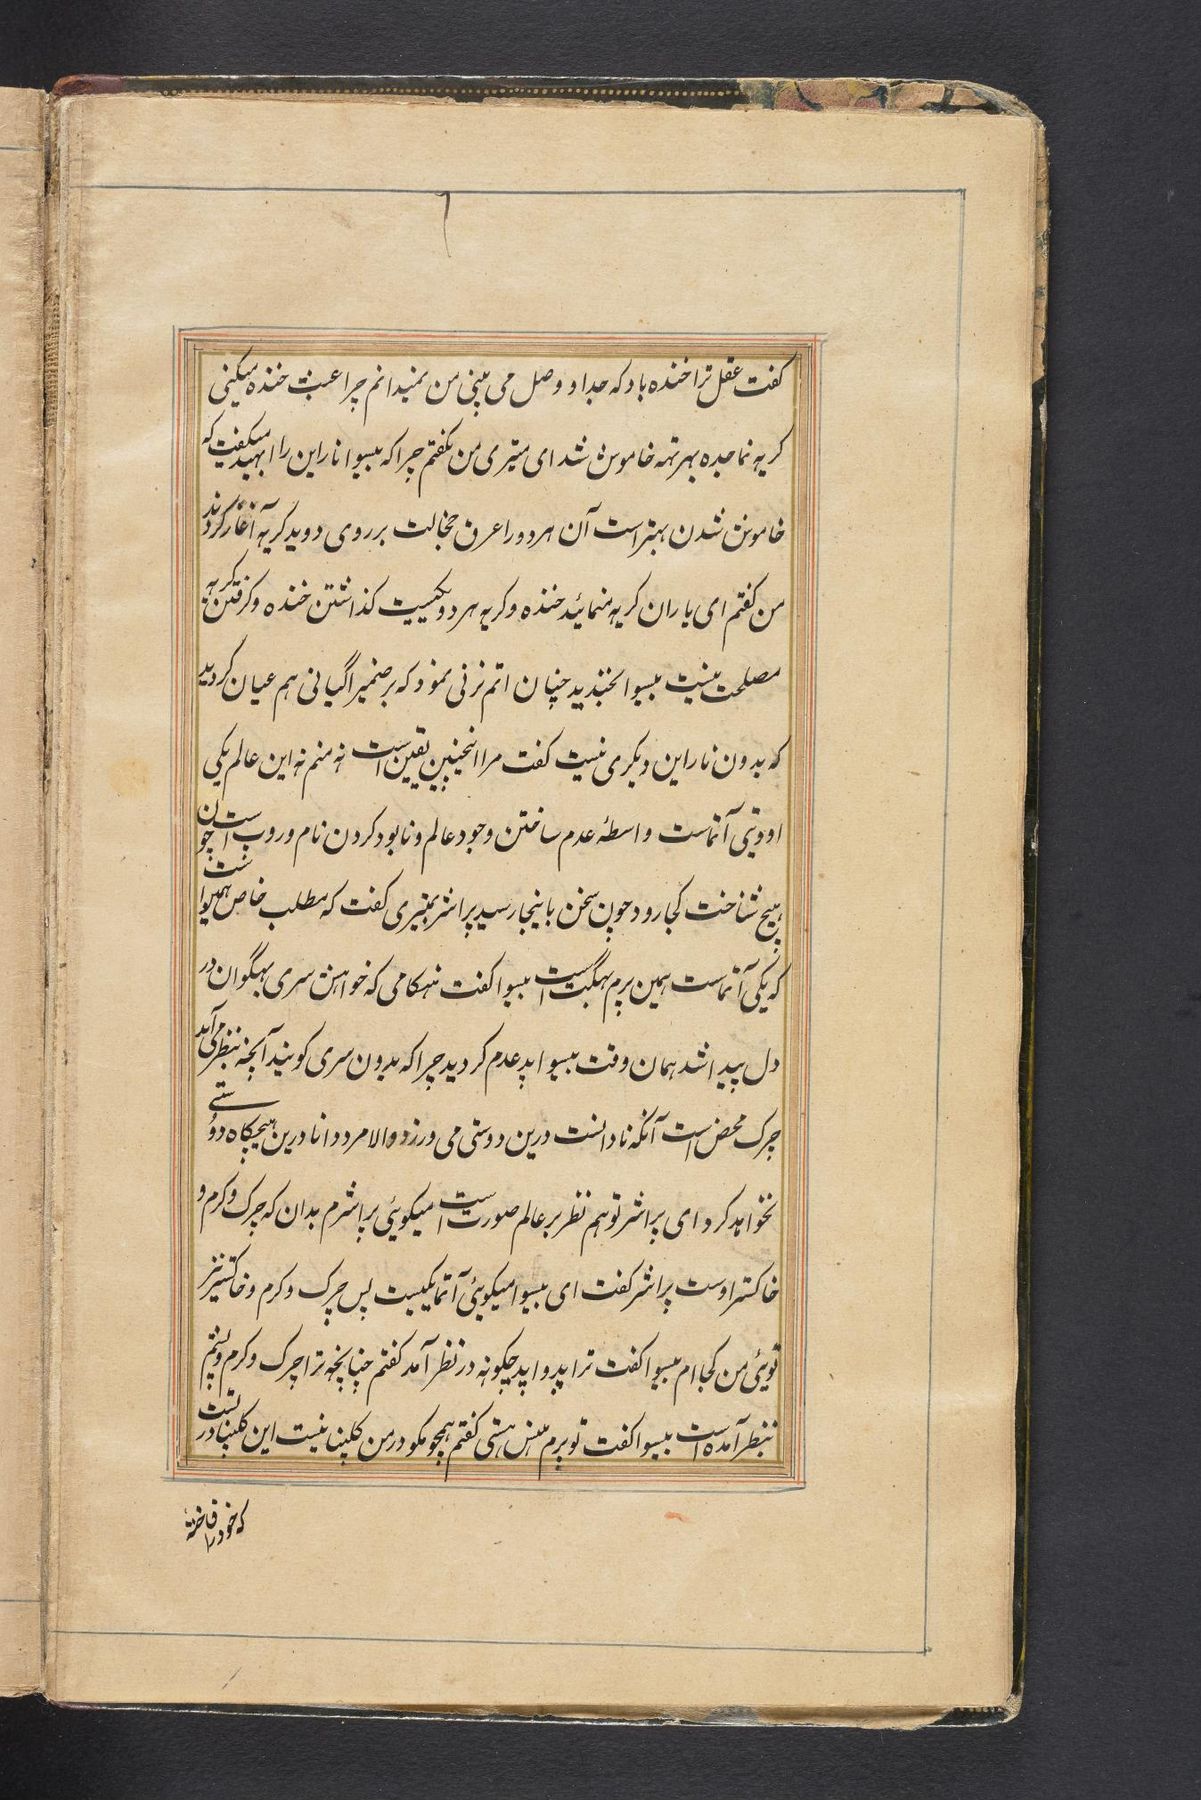 ۶
کفت عقل ترا خنده باد که جدا و وصل می بینی من نمیدانم چرا عبث خنده میکینی
کریه نما جده بهرتهه خاموش شد ای متیری من نکفتم چرا که بیسوا ناراین را ابهید میکفت که
خاموش شدن بهتر است آن هر دو را عرق خجالت بر روی دوید کریه آغاز کردند
من کفتم ای یاران کریه منمائید خنده و کریه هر دو یکیست کذاشتن خنده و کرفتن کریه
مصلحت نیست بیسوا بخندید چنان اتم نرنی نمود که بر ضمیر اکیانی هم عیان کردید
که بدون ناراین دیکری نیست کفت مرا اینچنین یقین است نه منم نه این عالم یکی
او دوتی آتماست واسطهٔ عدم ساختن وجود عالم و نابود کردن نام و روپ است چون
هیچ شناخت کجا رود چون سخن باینجا رسید پراشر بمتیری کفت که مطلب خاص همین است
که یکی آتماست همین پرم بهکت است بیسوا کفت هنکامی که خواهش سری بهکوان در
دل پیدا شد همان وقت بیسوا پد عدم کردید چرا که بدون سری کوبند آنچه بنظر می آید
چرک محض است آنکه نادانست درین دوستی می ورزد والا مرد دانا درین هیچکاه دوستی
نخواهد کرد ای پراشر تو هم نظر بر عالم صورت است میکوئی پراشرم بدان که چرک و کرم و
خاکستر اوست پراشر کفت ای بیسوا میکوئی آتما یکیست پس چرک و کرم و خاکستر نیز
توئی من کجا ام بیسوا کفت ترا پد و اپد چکونه در نظر آمد کفتم چنانچه ترا چرک و کرم و پشم
بنظر آمده است بیسوا کفت تو پرم هنس هستی کفتم همچو مکو در من کلپنا نیست این کلپنا در تست
که خود را فاخته